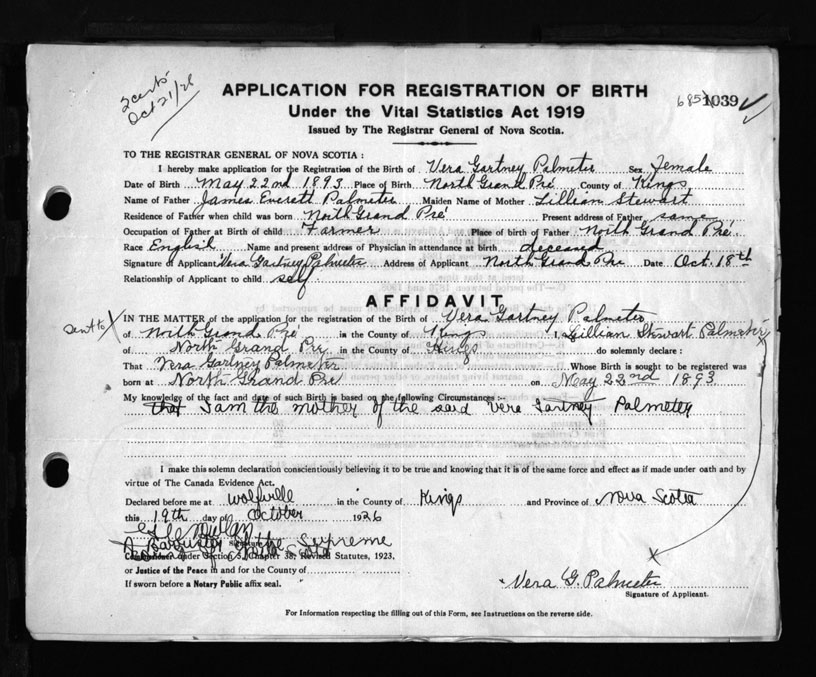 2 certs
Oct 21/26
APPLICATION FOR REGISTRATION OF BIRTH
1039
Under the Vital Statistics Act 1919
Issued by The Registrar General of Nova Scotia.
TO THE REGISTRAR GENERAL OF NOVA SCOTIA :
I hereby make application for the Registration of the Birth of Vera Gartney Palmeter Sex Female
Date of Birth May 22nd 1893 Place of Birth North Grand Pré County of Kings
Name of Father James Everett Palmeter Maiden Name of Mother Lillian Stewart
Residence of Father when child was born North Grand Pré Present address of Father same
Occupation of Father at Birth of child Farmer Place of birth of Father North Grand Pré.
Race English Name and present address of Physician in attendance at birth deceased
Signature of Applicant Vera Gartney Palmeter Address of Applicant North Grand Pré Date Oct. 18th
Relationship of Applicant to child self
AFFIDAVIT
sent to X
IN THE MATTER of the application for the registration of the Birth of Vera Gartney Palmeter
of North Grand Pré in the County of Kings I, Lillian Stewart Palmeter
of North Grand Pré in the County of Kings do solemnly declare :
That Vera Gartney Palmeter Whose Birth is sought to be registered was
born at North Grand Pré on May 22nd 1893
My knowledge of the fact and date of such Birth is based on the following Circumstances :-
that I am the mother of the said Vera Gartney Palmeter
I make this solemn declaration conscientiously believing it to be true and knowing that it is of the same force and effect as if made under oath and by
virtue of The Canada Evidence Act.
Declared before me at Wolfville in the County of Kings and Province of Nova Scotia
this 19th day of October 1926
A Barrister of the Supreme
Court of Nova Scotia
under Section Chapter 38, Revised Statutes, 1923,
or Justice of the Peace in and for the County of
If sworn before a Notary Public affix seal.
X
Vera G. Palmeter
Signature of Applicant.
For Information respecting the filling out of this Form, see Instructions on the reverse side.